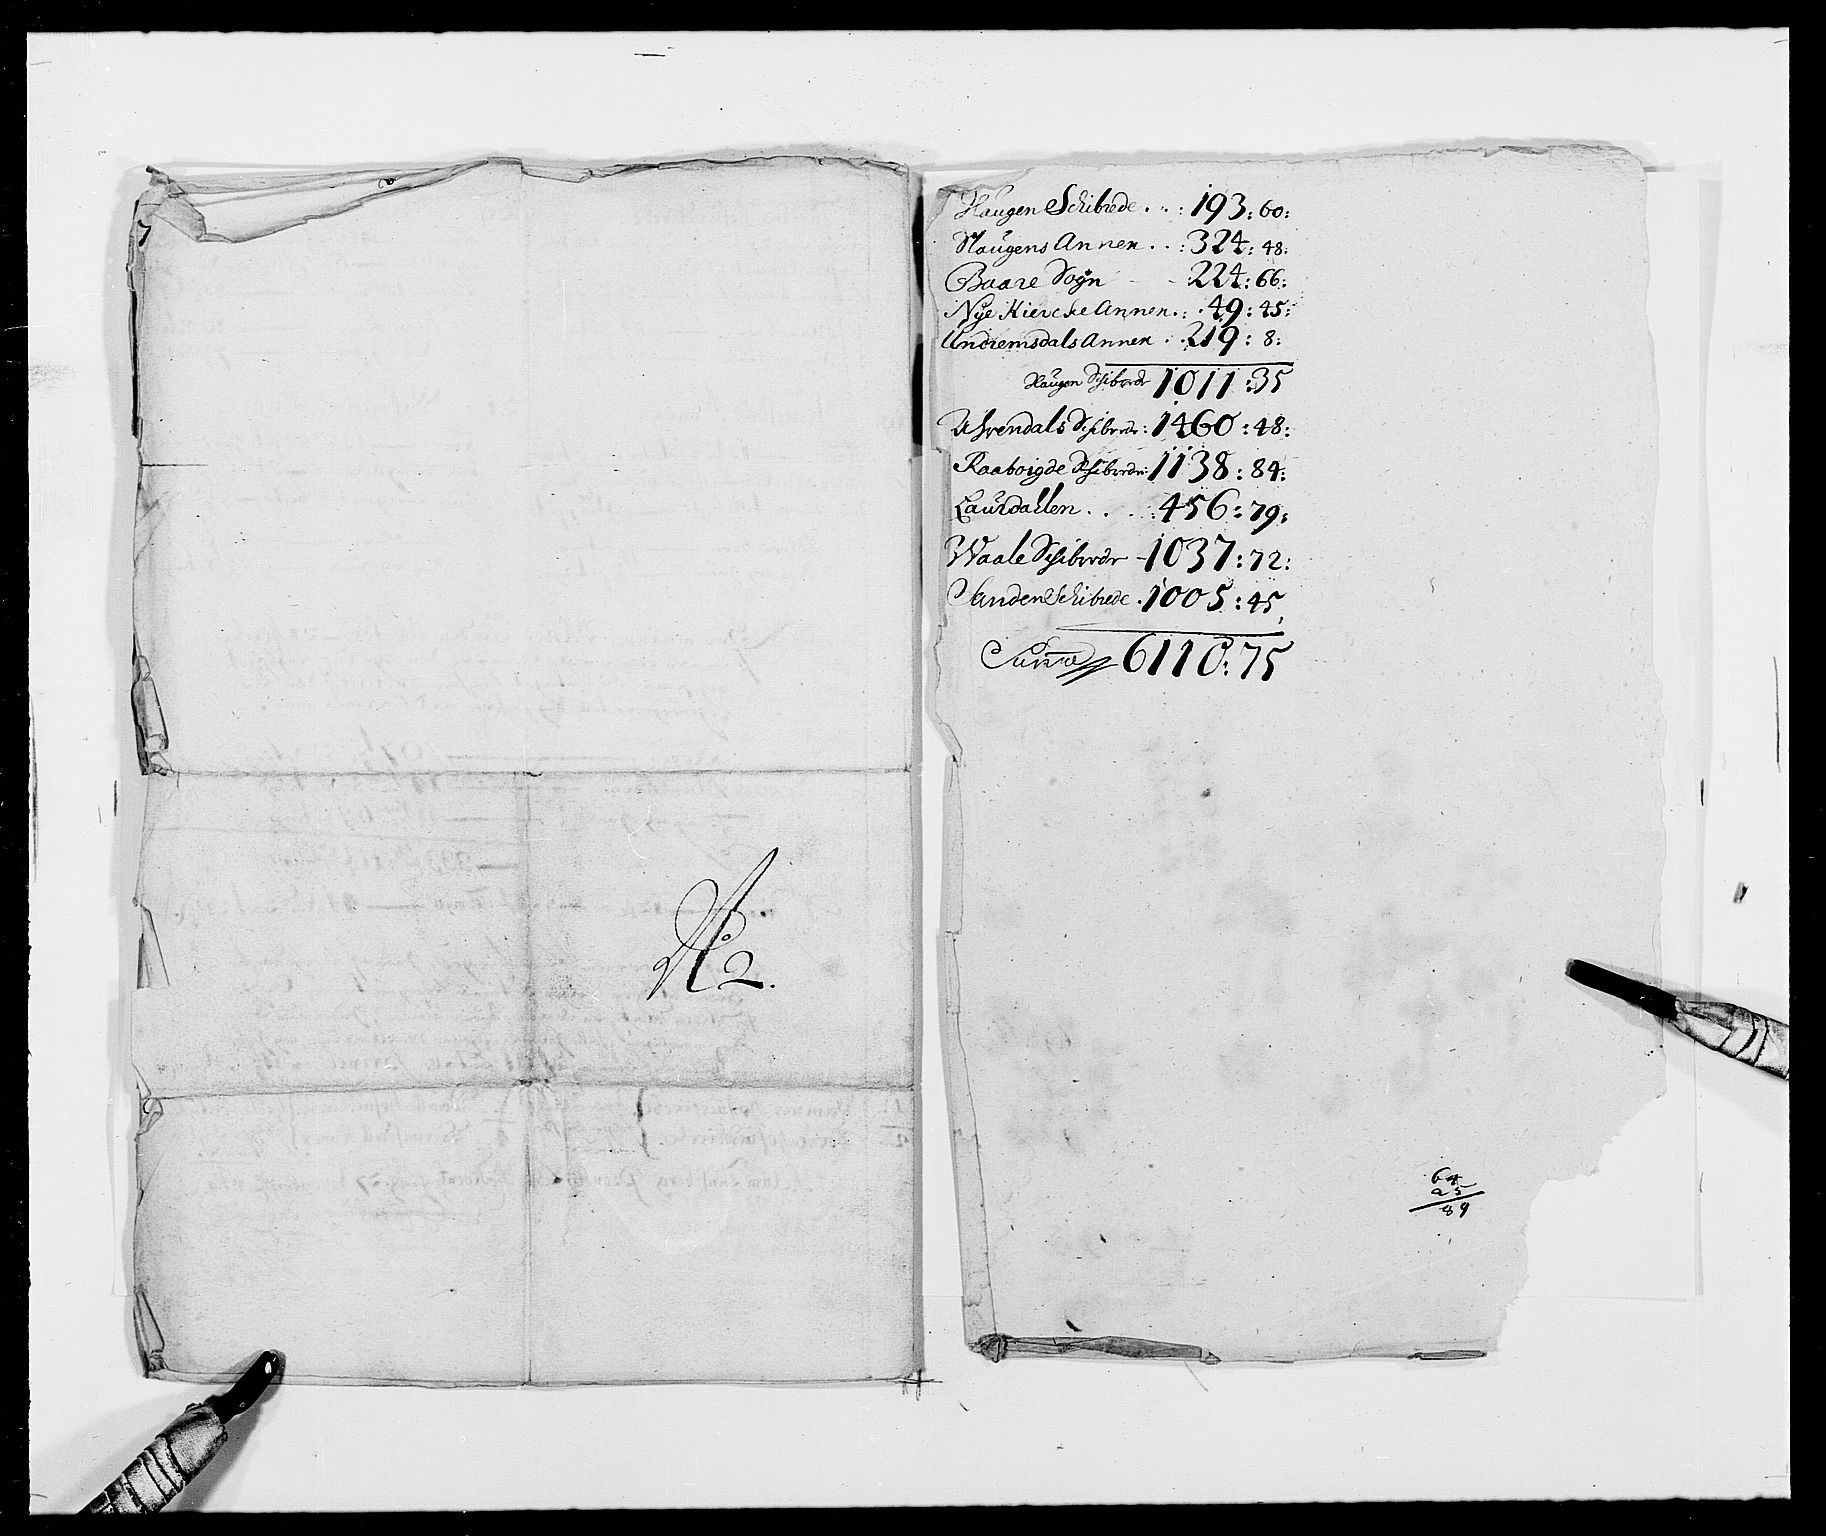 No 2.
Haugen Schibrede . . : 193 : 60 :
Haugens Annex . . : 324 : 48 :
Baare Sogn - - 224 : 66 :
Nye Kiercke Annex . : . 49 : 45 :
Undremsdals Annex . . 219 : 8 :
Haugen Schibrede 1011 : 35
Uhrendals Schibrede : 1460 : 48 :
Raaboigde Schibrede : 1138 : 84 :
Laurdallen . . . : 456 : 79 :
Waale Schibrede - 1037 : 72 :
Sanden Schibrede . 1005 : 45
Summa 6110 : 75
64
25
89